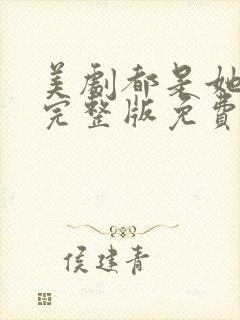 美劇都是她的錯
完整版免費
侯建青